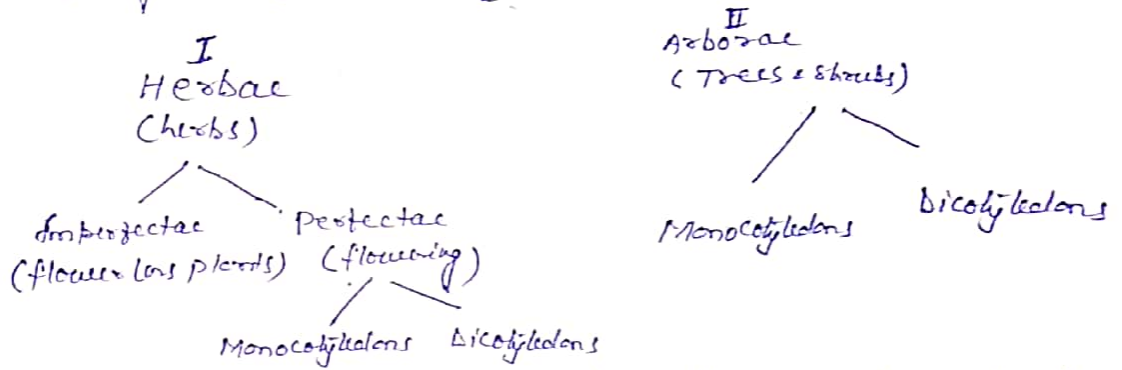 I
Herbae
(herbs)
Imperfectae
(flowerless plants)
Perfectae
(flowering)
Monocotyledons
Dicotyledons
II
Arborae
(Trees & Shrubs)
Monocotyledons
Dicotyledons